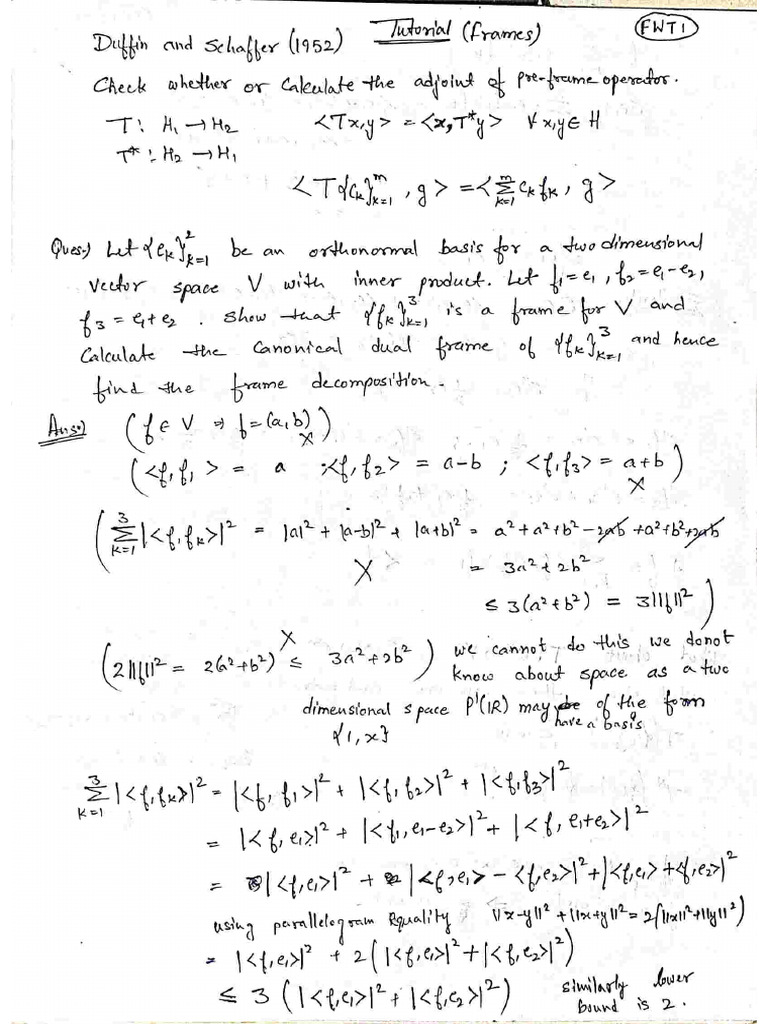 Tutorial (frames)
FWT1
Duffin and Schaffer (1952)
Check whether or Calculate the adjoint of pre-frame operator.
T: H₁ → H₂ <Tx,y> = <x,T*y> ∀ x,y ∈ H
T* : H₂ → H₁
<T{cₖ}ᵐₖ₌₁ , g> = <Σᵐₖ₌₁ cₖ fₖ , g>
Ques.) Let {eₖ}²ₖ₌₁ be an orthonormal basis for a two dimensional
vector space V with inner product. Let f₁ = e₁ , f₂ = e₁-e₂,
f₃ = e₁+e₂ . Show that {fₖ}³ₖ₌₁ is a frame for V and
Calculate the canonical dual frame of {fₖ}³ₖ₌₁ and hence
find the frame decomposition.
Ans.) (f ∈ V ⇒ f = (a,b)) X
(<f,f₁> = a ; <f,f₂> = a-b ; <f,f₃> = a+b) X
(Σ³ₖ₌₁ |<f,fₖ>|² = |a|² + |a-b|² + |a+b|² = a²+a²+b²-2ab+a²+b²+2ab
X = 3a²+2b²
≤ 3(a²+b²) = 3||f||²)
(2||f||² = 2(a²+b²) ≤ 3a²+2b²) X we cannot do this we donot
know about space as a two
dimensional space P'(IR) may be of the form
have a basis
{1,x}
Σ³ₖ₌₁ |<f,fₖ>|² = |<f,f₁>|² + |<f,f₂>|² + |<f,f₃>|²
= |<f,e₁>|² + |<f₁,e₁-e₂>|² + |<f,e₁+e₂>|²
= |<f,e₁>|² + |<f,e₁> - <f,e₂>|² + |<f,e₁> + <f,e₂>|²
using parallelogram equality ||x-y||² + ||x+y||² = 2(||x||²+||y||²)
= |<f,e₁>|² + 2(|<f,e₁>|² + |<f,e₂>|²)
≤ 3 (|<f,e₁>|² + |<f,e₂>|²) similarly lower
bound is 2.